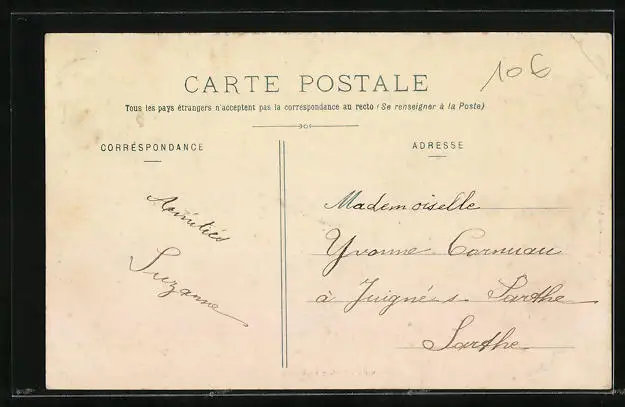 106
CARTE POSTALE
Tous les pays étrangers n'acceptent pas la correspondance au recto (Se renseigner à la Poste)
CORRÉSPONDANCE
ADRESSE
Amitiés
Suzanne
Mademoiselle
Yvonne Cornuau
à Juigné s. Sarthe
Sarthe